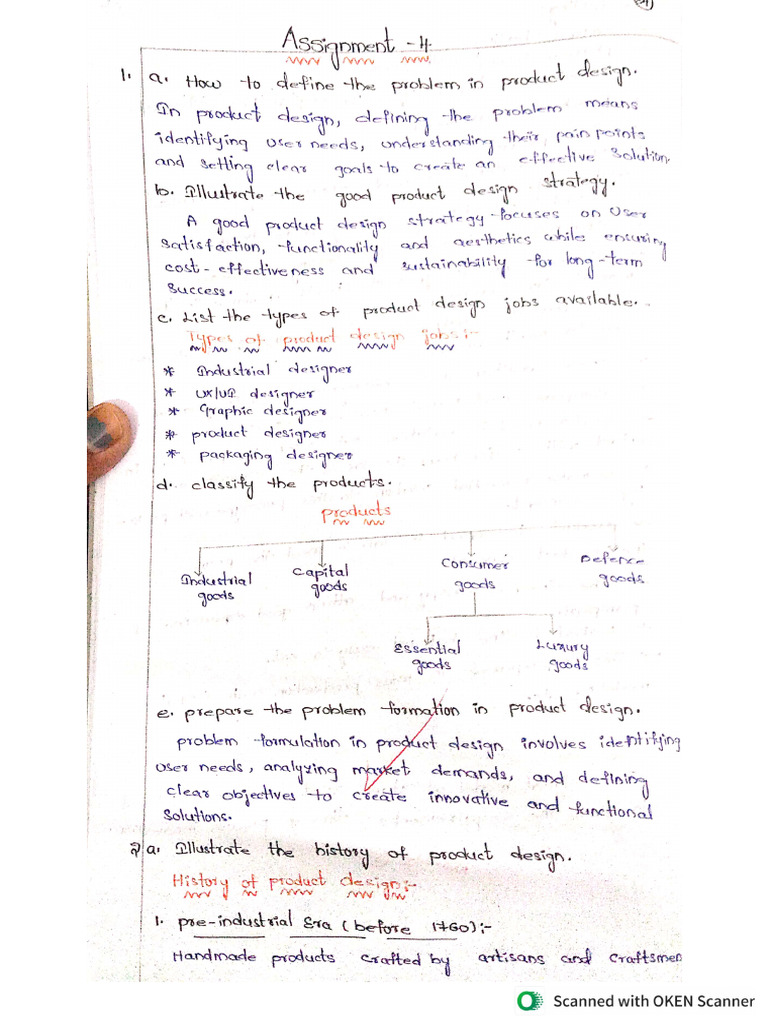 Assignment - 4.
1. a. How to define the problem in product design.
In product design, defining the problem means
identifying user needs, understanding their pain points
and setting clear goals to create an effective solution.
b. Illustrate the good product design strategy.
A good product design strategy focuses on user
satisfaction, functionality and aesthetics while ensuring
cost-effectiveness and sustainability for long-term
success.
c. List the types of product design jobs available.
Types of product design jobs:-
* Industrial designer
* UX/UI designer
* Graphic designer
* product designer
* packaging designer
d. classify the products.
products
Industrial goods
capital goods
Consumer goods
Defence goods
Essential goods
Luxury goods
e. prepare the problem formation in product design.
problem formulation in product design involves identifying
user needs, analyzing market demands, and defining
clear objectives to create innovative and functional
solutions.
2 a. Illustrate the history of product design.
History of product design:-
1. pre-industrial Era (before 1760):-
Handmade products crafted by artisans and craftsmen
Scanned with OKEN Scanner